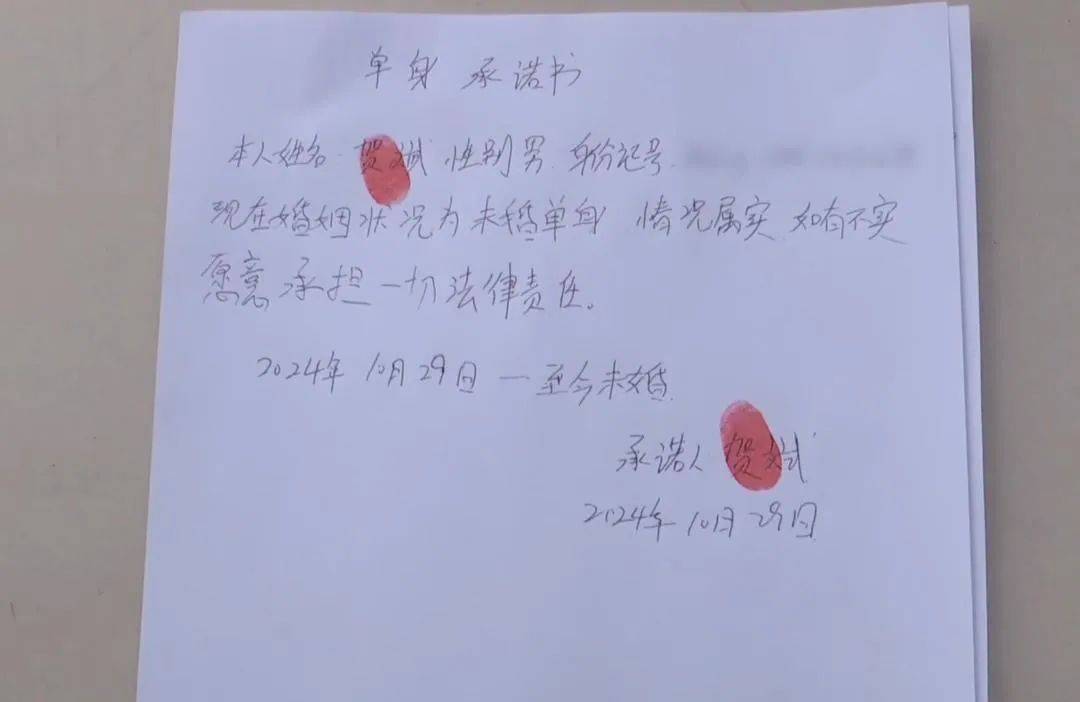 单身 承诺书
本人姓名 贺斌 性别男 身份记号
现在婚姻状况为未婚单身 情况属实 如有不实
愿意承担一切法律责任。
2024年10月29日一至今未婚
承诺人 贺斌
2024年10月29日